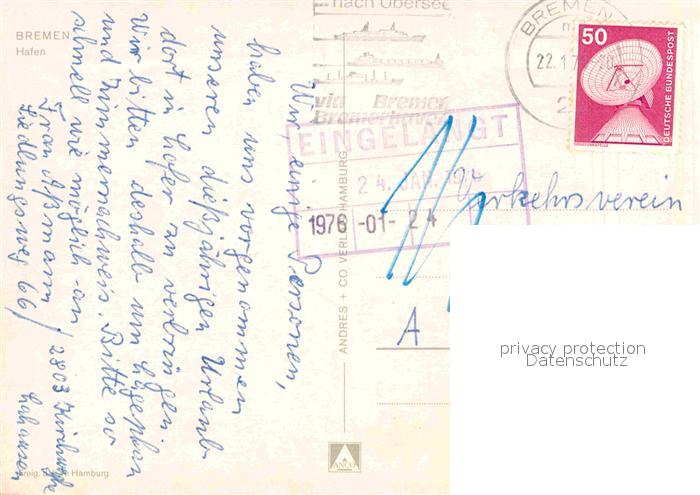 BREMEN
Hafen
Wir, einige Personen,
haben uns vorgenommen
unseren diesjährigen Urlaub
dort in Hofer zu verbringen
Wir bitten deshalb um Lageplan
und Zimmernachweis. Bitte so
schnell wie möglich an
Frau
Siedlungsweg 66 / 2803 Kirchweyhe
Lahausen
nach Übersee
via Bremen
Bremerhaven
BREMEN
22.1.7
2
50
DEUTSCHE BUNDESPOST
ERDEFUNKSTELLE
EINGELANGT
24. JAN. 197
1976 -01- 24
Verkehrsverein
A
privacy protection
Datenschutz
ANDRES + CO VERLAG HAMBURG
ANCO
Hamburg